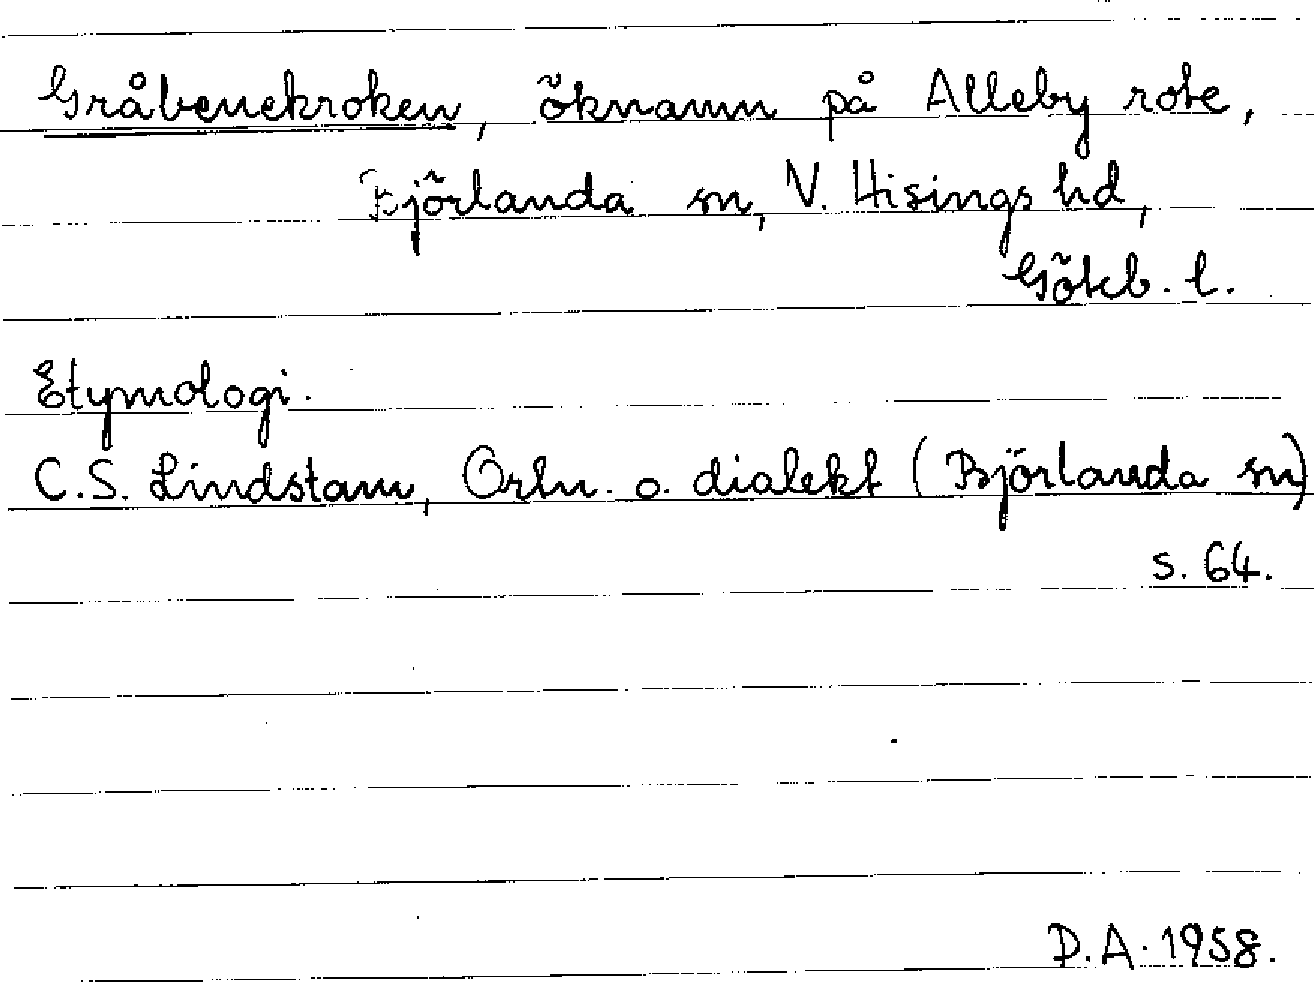 Gråbenekroken, öknamn på Alleby rote,
Björlanda sn, V. Hisings hd,
Göteb. l.
Etymologi.
C.S. Lindstam, Ortn. o. dialekt (Björlanda sn)
s. 64.
D.A. 1958.